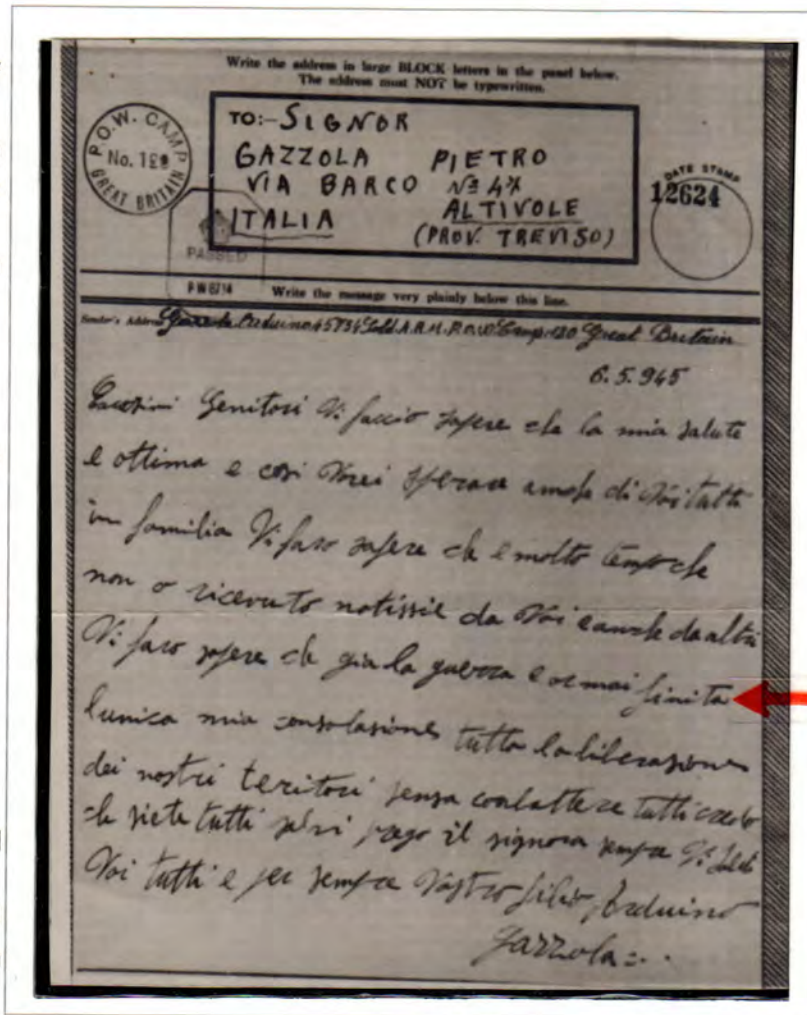 Write the address in large BLOCK letters in the panel below.
The address must NOT be typewritten.
P.O.W. CAMP
No. 1
GREAT BRITAIN
TO:- SIGNOR
GAZZOLA PIETRO
VIA BARCO Nº 47
ITALIA ALTIVOLE
(PROV. TREVISO)
DATE STAMP
12624
PASSED
P W 6714
Write the message very plainly below this line.
Sender's Address Gazzola Arduino 45734 Sold. A.R.M. P.O.W Camp. 120 Great Britain
6.5.945
Genitori Vi faccio sapere che la mia salute
e ottima e cosi Vorei sperare anche di Voi tutti
in familia Vi faro sapere che e molto tempo che
non o ricevuto notissie da Voi e anche da altri
Vi faro sapere che gia la guerra e or mai finita
lunica mia consolasione tutta la liberasione
dei nostri teritori sensa conbattere tutti credo
che siete tutti salvi prego il signore sempre Vi
Voi tutti e per sempre Vostro filio Arduino
Gazzola